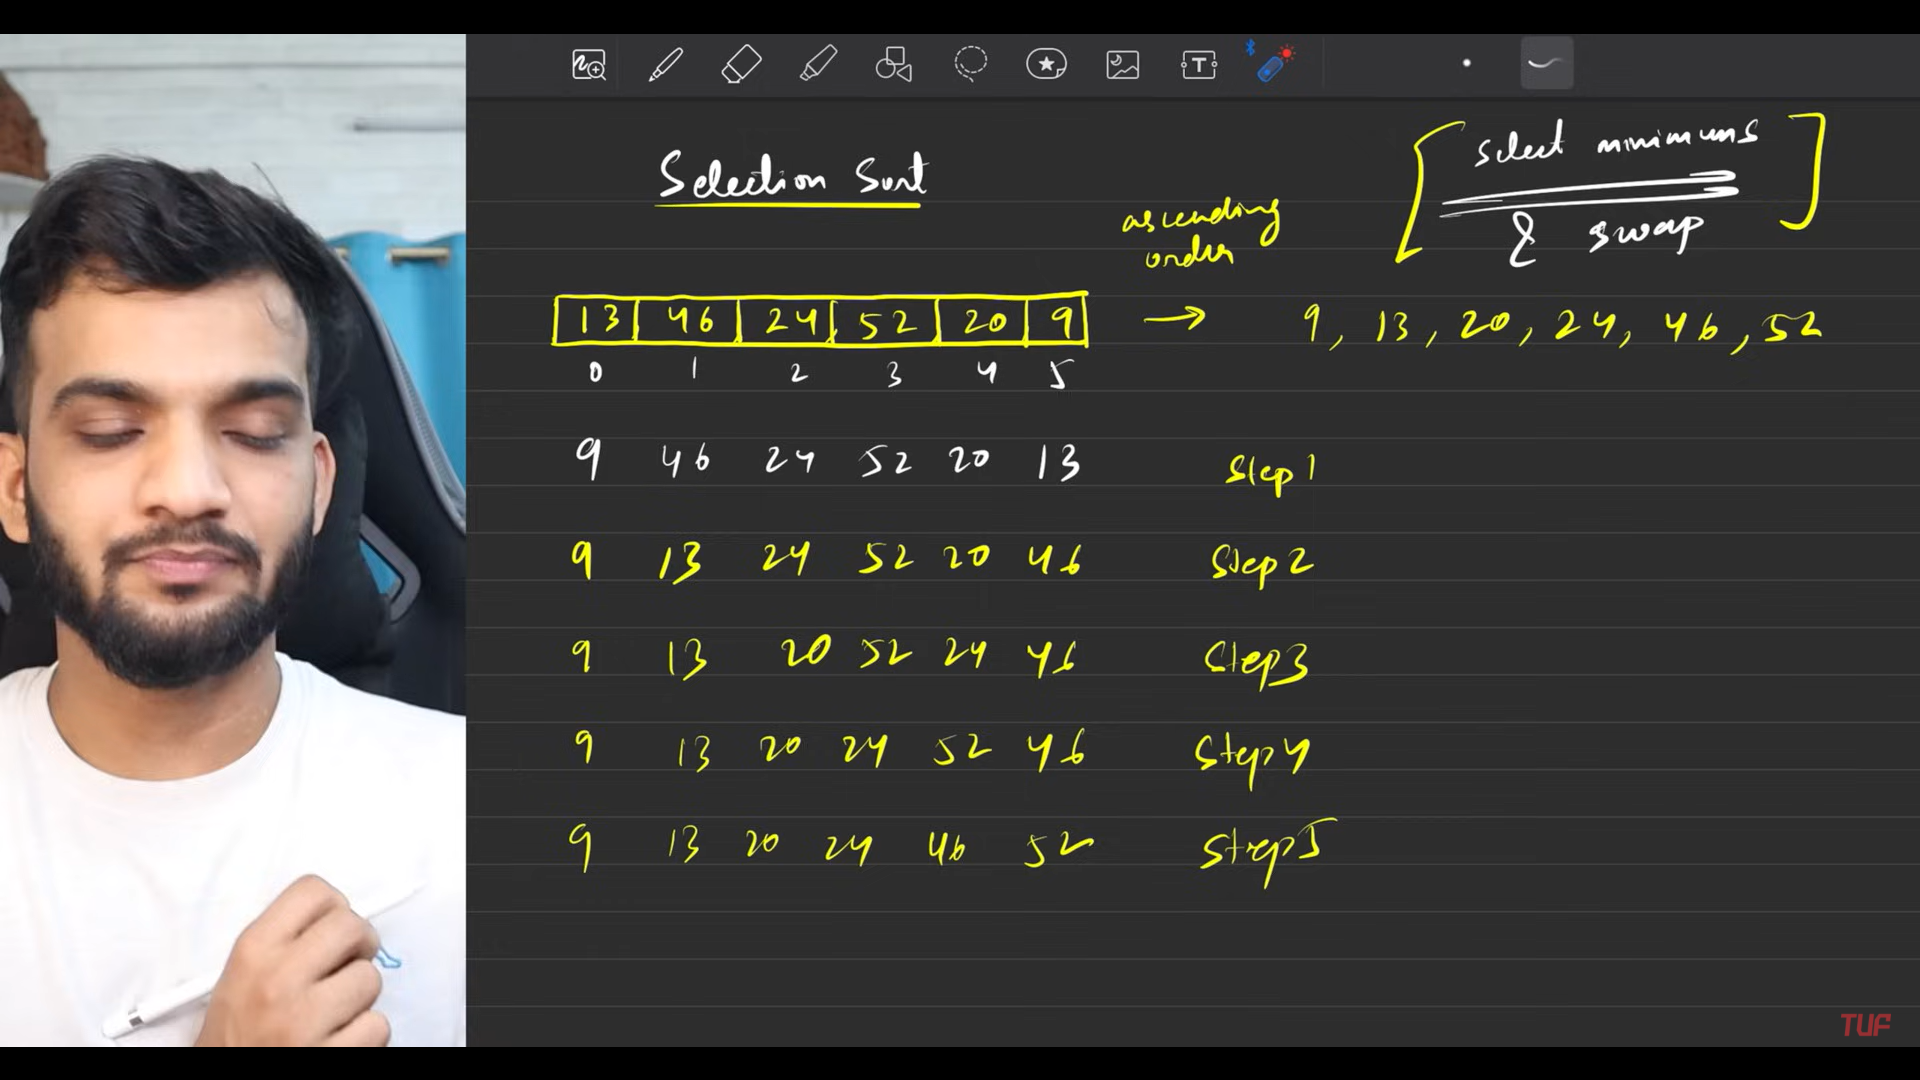 Selection Sort
ascending
order
select minimums
& swap
13 46 24 52 20 9 → 9, 13, 20, 24, 46, 52
0 1 2 3 4 5
9 46 24 52 20 13 Step 1
9 13 24 52 20 46 Step 2
9 13 20 52 24 46 Step 3
9 13 20 24 52 46 Step 4
9 13 20 24 46 52 Step 5
TUF